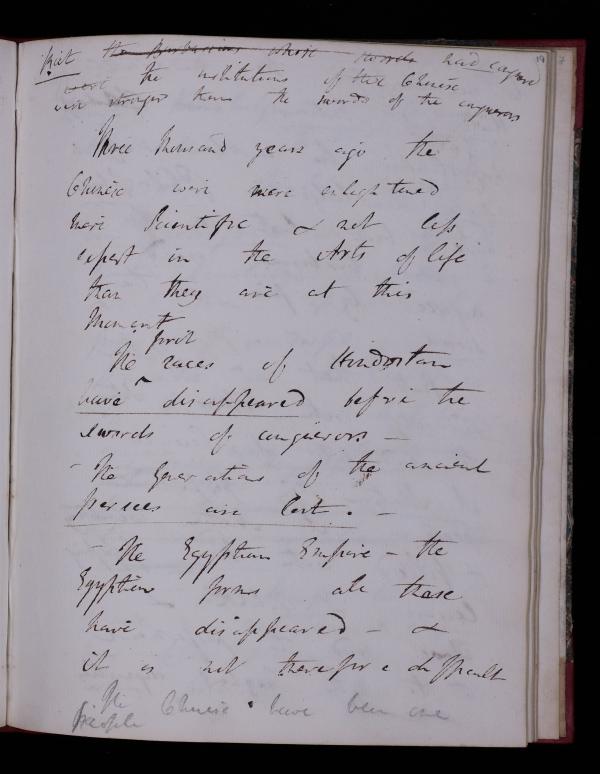 But the Barbarians whose swords had conquered
were the institutions of the Chinese
were stronger than the swords of the conquerors
Three thousand years ago the
Chinese were more enlightened
more Scientific & not less
expert in the Arts of life
than they are at this
Moment
first
The races of Hindostan
have disappeared before the
swords of conquerors —
- The generations of the ancient
Persees are lost. -
- The Egyptian Empire - the
Egyptian forms all these
have disappeared - &
it is not therefore difficult
The
people Chinese have been one